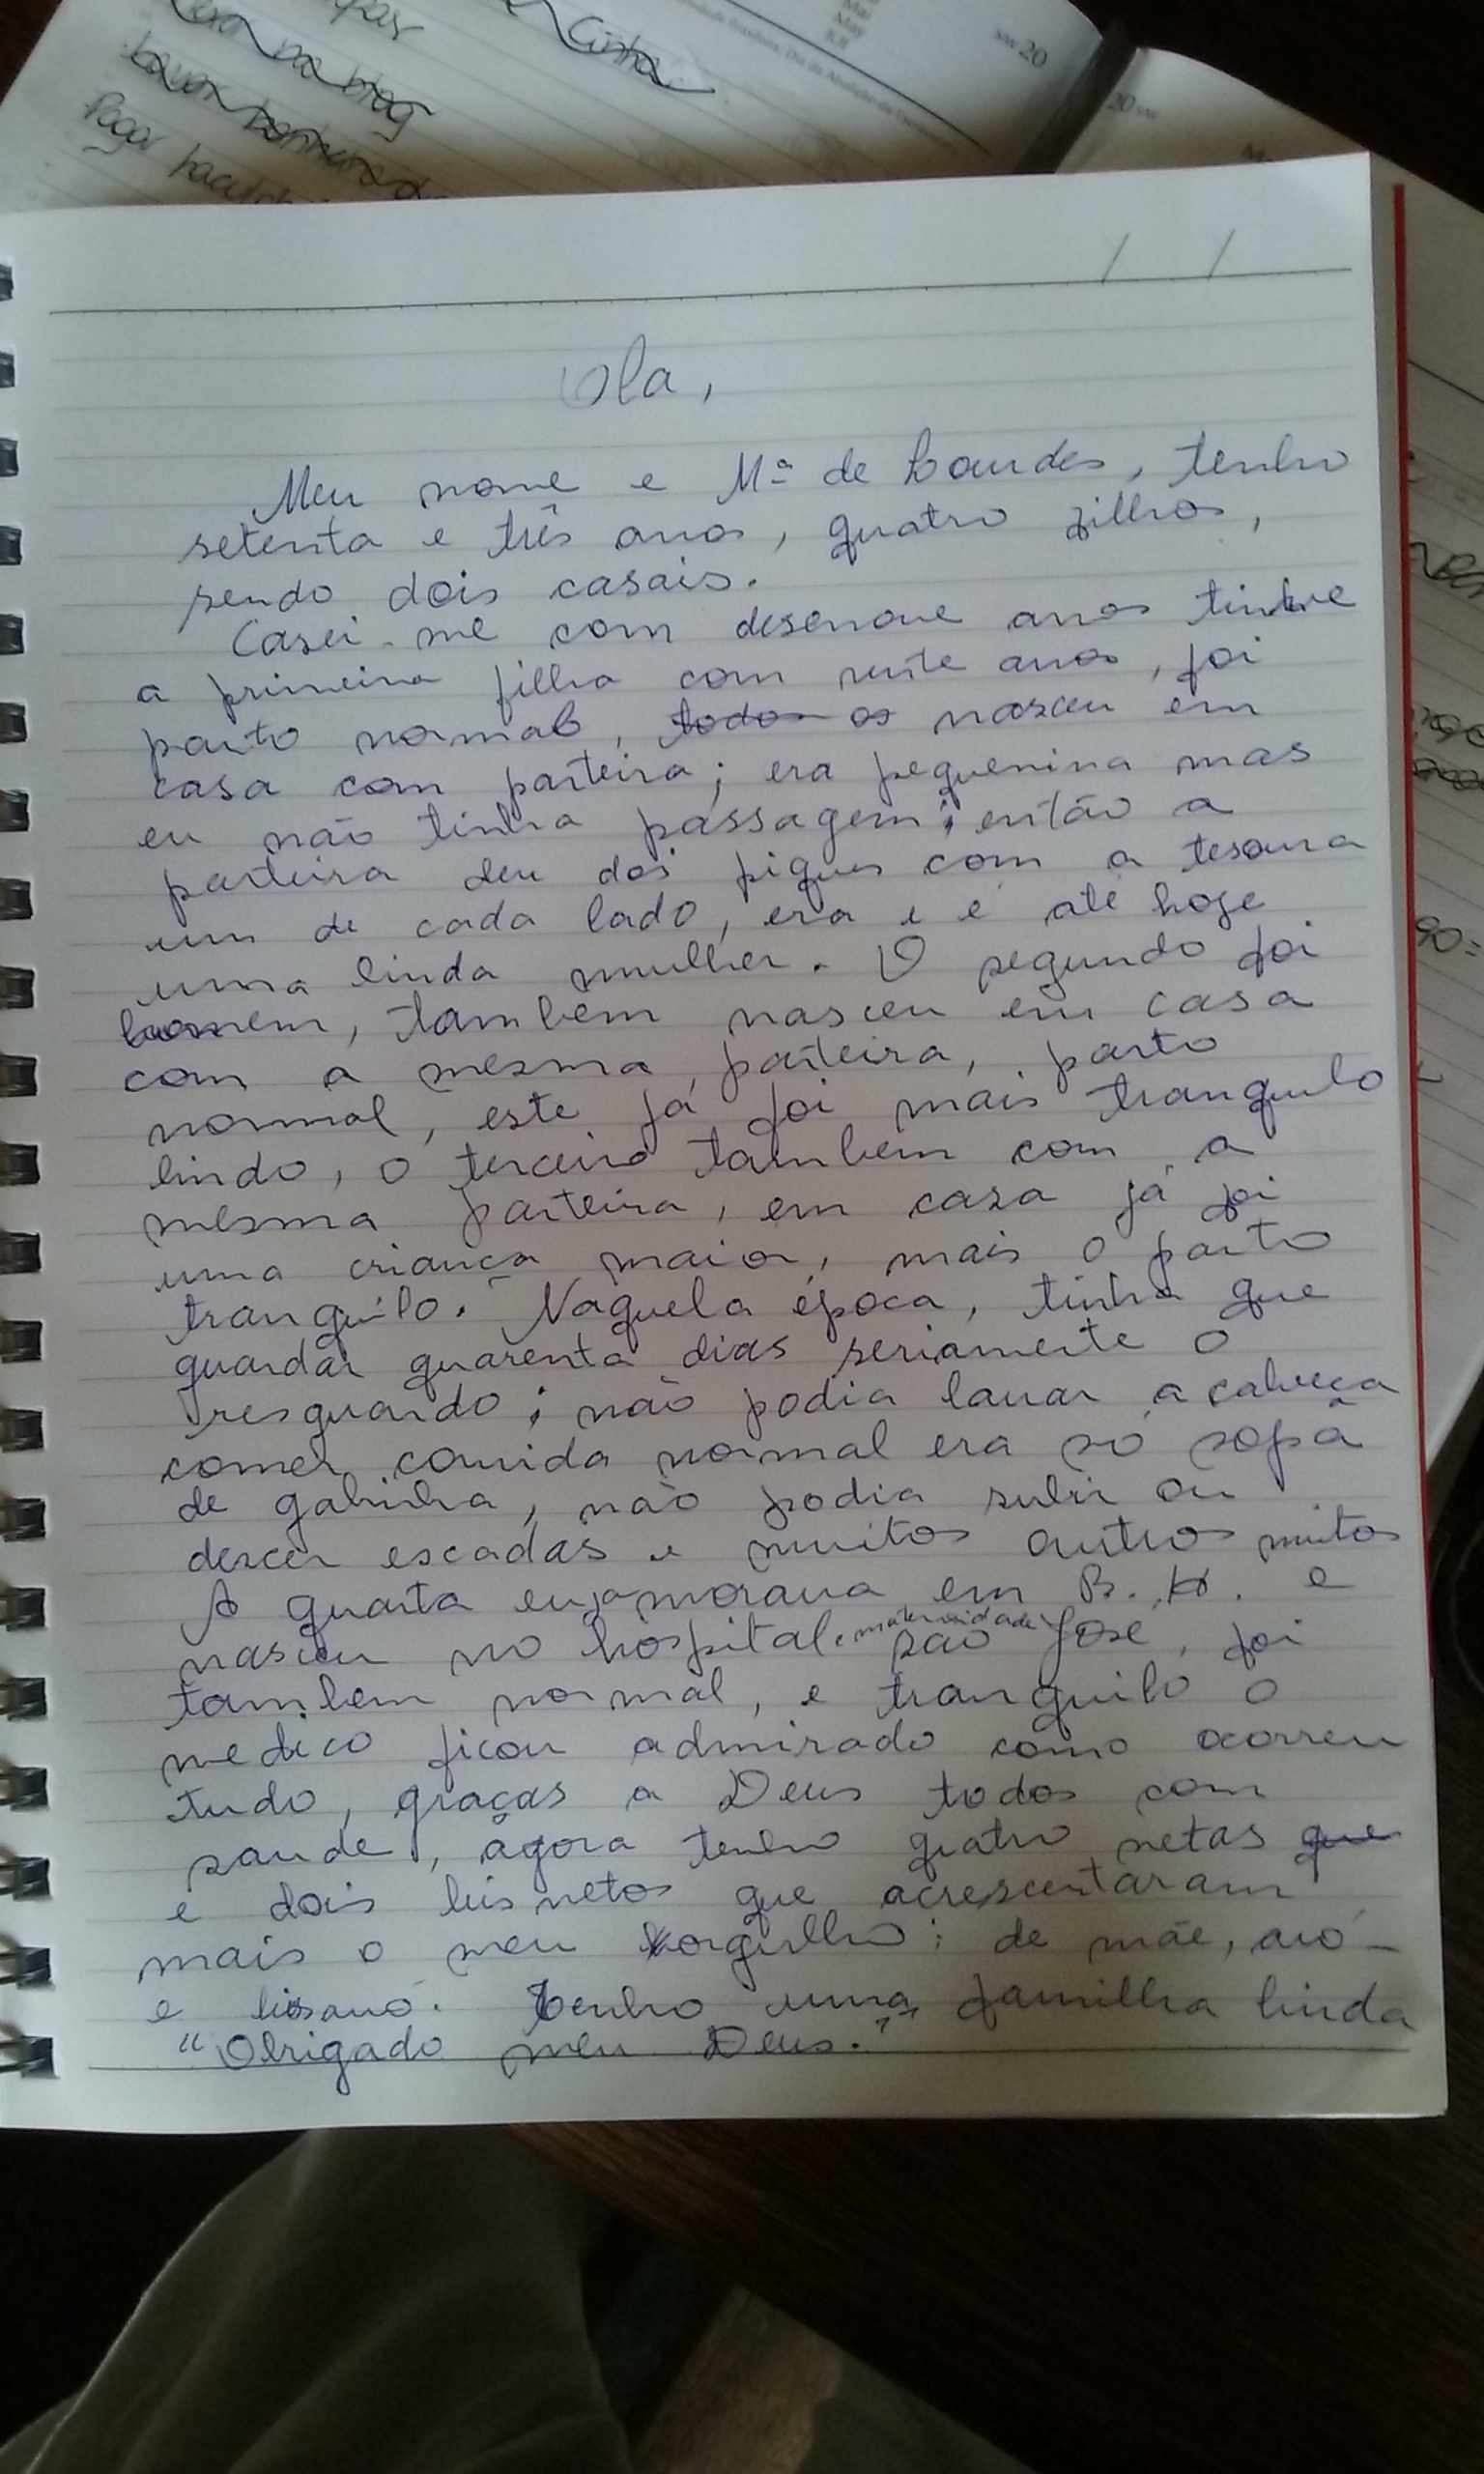 Cinha
era no blog
Pagar
sw 20
20 sw
Ola,
Meu nome e Mª de Lourdes, tenho
setenta e três anos, quatro filhos,
sendo dois casais.
Casei-me com desenove anos tive
a primeira filha com vinte anos, foi
parto normal, todos os nasceu em
casa com parteira; era pequenina mas
eu não tinha passagem; então a
parteira deu dois piques com a tesoura
um de cada lado, era e é até hoje
uma linda mulher. O segundo foi
homem, tambem nasceu em casa
com a mesma parteira, parto
normal, este já foi mais tranquilo
lindo, o terceiro tambem com a
mesma parteira, em casa já foi
uma criança maior, mais o parto
tranquilo. Naquela época, tinha que
guardar quarenta dias seriamente o
resguardo; não podia lavar a cabeça
comer comida normal era só sopa
de galinha, não podia subir ou
descer escadas e muitos outros mitos
A quarta eu ja morava em B.H. e
nasceu no hospital, maternidade são José, foi
tambem normal, e tranquilo o
medico ficou admirado como ocorreu
tudo, graças a Deus todos com
saude, agora tenho quatro netas que
e dois bisnetos que acrescentaram
mais o meu orgulho: de mãe, avó
e bisavó. tenho uma familha linda
"Obrigado meu Deus."
90=